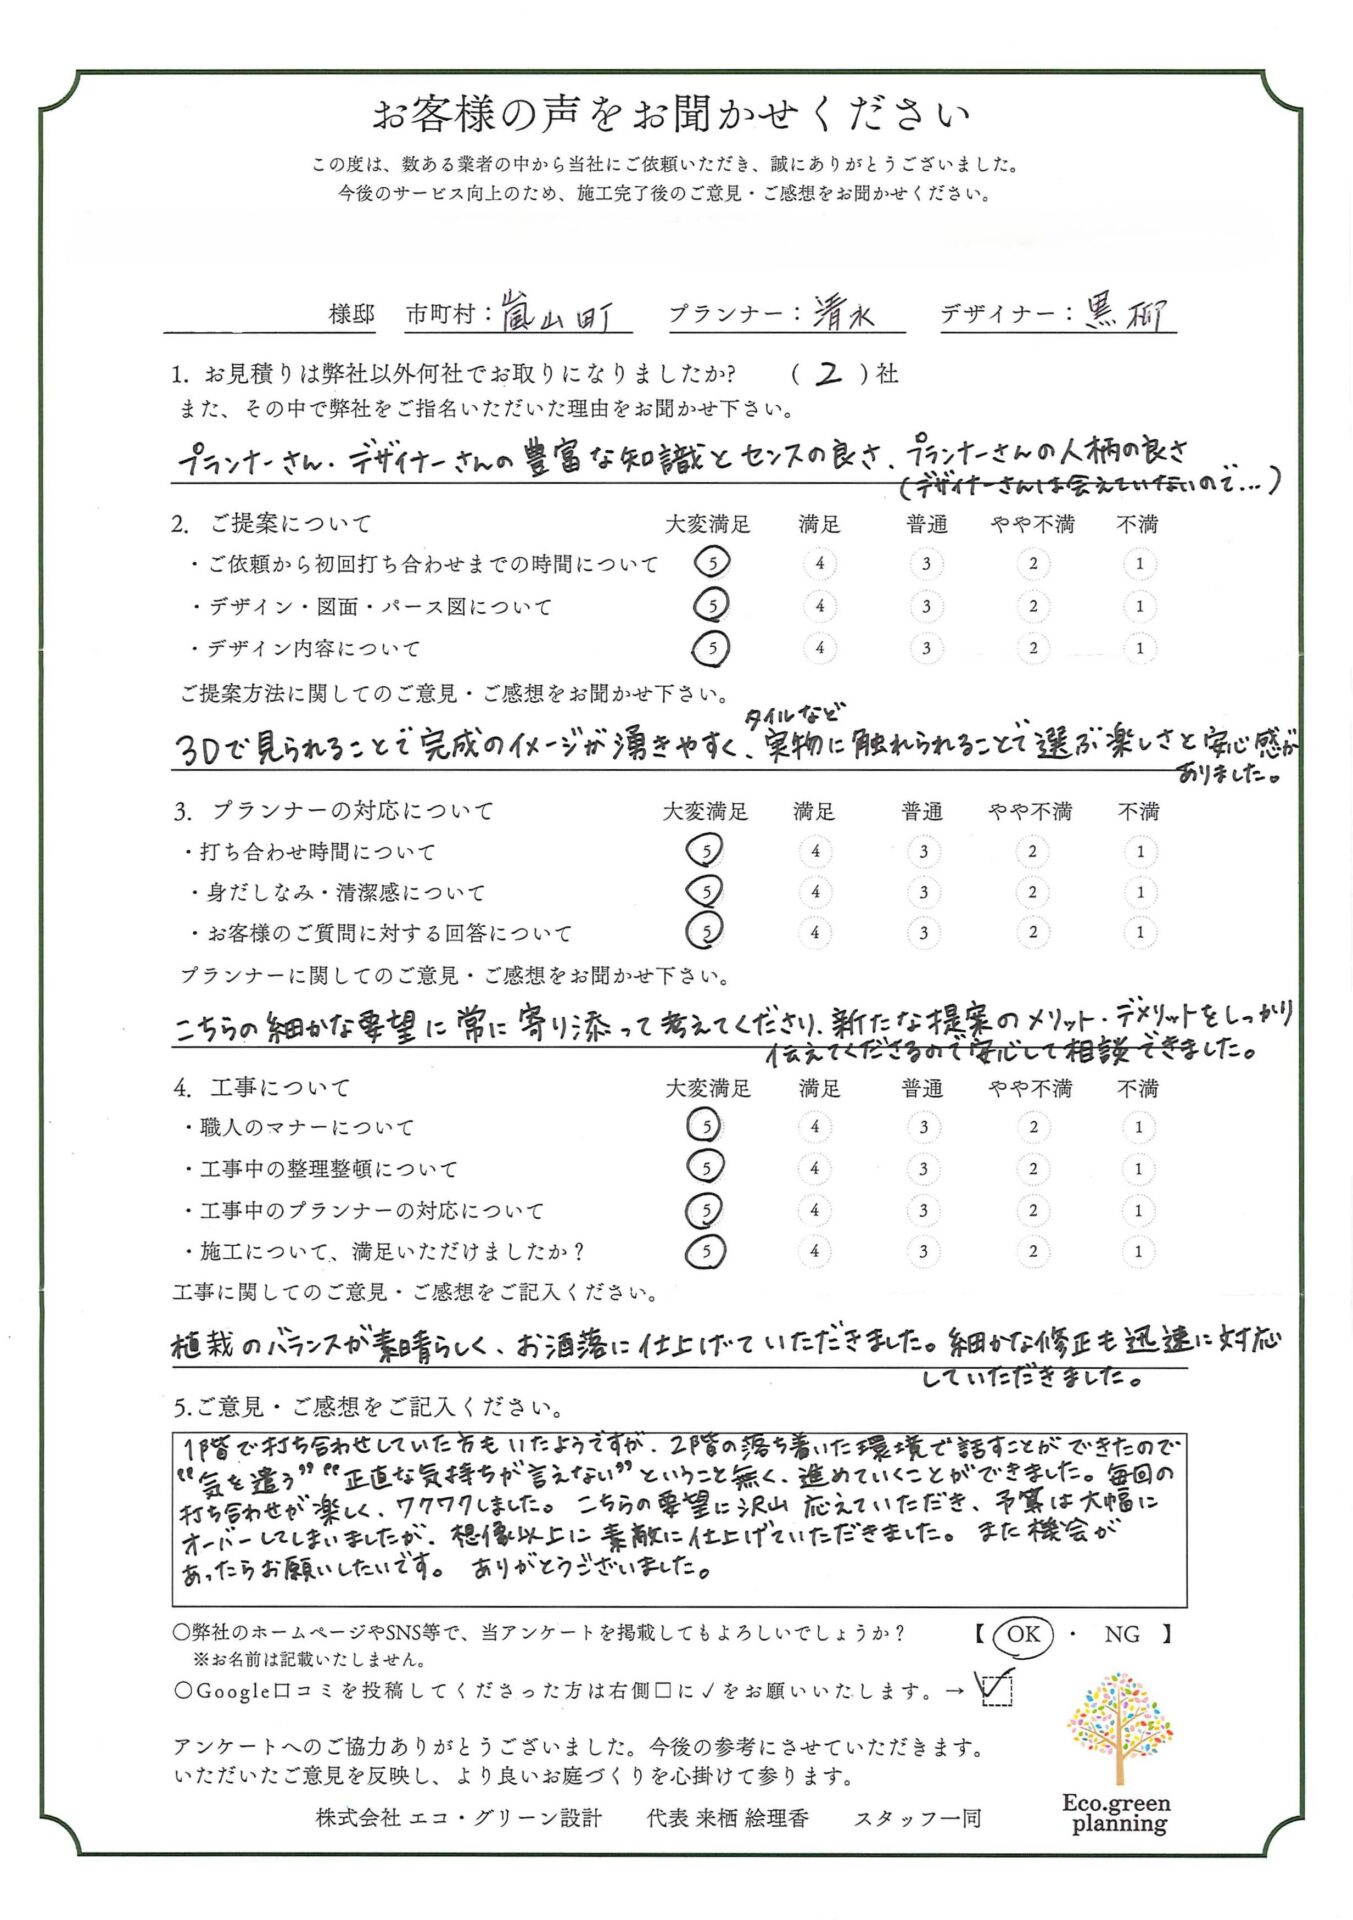 お客様の声をお聞かせください
この度は、数ある業者の中から当社にご依頼いただき、誠にありがとうございました。
今後のサービス向上のため、施工完了後のご意見・ご感想をお聞かせください。
様邸 市町村：嵐山町 プランナー：清水 デザイナー：黒柳
1. お見積りは弊社以外何社でお取りになりましたか? （ 2 ）社
また、その中で弊社をご指名いただいた理由をお聞かせ下さい。
プランナーさん・デザイナーさんの豊富な知識とセンスの良さ、プランナーさんの人柄の良さ
(デザイナーさんは会えていないので…)
2. ご提案について 大変満足 満足 普通 やや不満 不満
・ご依頼から初回打ち合わせまでの時間について 5 4 3 2 1
・デザイン・図面・パース図について 5 4 3 2 1
・デザイン内容について 5 4 3 2 1
ご提案方法に関してのご意見・ご感想をお聞かせ下さい。
タイルなど
3Dで見られることで完成のイメージが湧きやすく、実物に触れられることで選ぶ楽しさと安心感が
ありました。
3. プランナーの対応について 大変満足 満足 普通 やや不満 不満
・打ち合わせ時間について 5 4 3 2 1
・身だしなみ・清潔感について 5 4 3 2 1
・お客様のご質問に対する回答について 5 4 3 2 1
プランナーに関してのご意見・ご感想をお聞かせ下さい。
こちらの細かな要望に常に寄り添って考えてくださり、新たな提案のメリット・デメリットをしっかり
伝えてくださるので安心して相談できました。
4. 工事について 大変満足 満足 普通 やや不満 不満
・職人のマナーについて 5 4 3 2 1
・工事中の整理整頓について 5 4 3 2 1
・工事中のプランナーの対応について 5 4 3 2 1
・施工について、満足いただけましたか？ 5 4 3 2 1
工事に関してのご意見・ご感想をご記入ください。
植栽のバランスが素晴らしく、お洒落に仕上げていただきました。細かな修正も迅速に対応
していただきました。
5.ご意見・ご感想をご記入ください。
1階で打ち合わせしていた方もいたようですが、2階の落ち着いた環境で話すことができたので
“気を遣う”“正直な気持ちが言えない”ということ無く、進めていくことができました。毎回の
打ち合わせが楽しく、ワクワクしました。こちらの要望に沢山応えていただき、予算は大幅に
オーバーしてしまいましたが、想像以上に素敵に仕上げていただきました。また機会が
あったらお願いしたいです。ありがとうございました。
〇弊社のホームページやSNS等で、当アンケートを掲載してもよろしいでしょうか？ 【 OK ・ NG 】
※お名前は記載いたしません。
〇Google口コミを投稿してくださった方は右側□に✓をお願いいたします。→ ✓
アンケートへのご協力ありがとうございました。今後の参考にさせていただきます。
いただいたご意見を反映し、より良いお庭づくりを心掛けて参ります。
株式会社 エコ・グリーン設計 代表 来栖 絵理香 スタッフ一同
Eco.green
planning